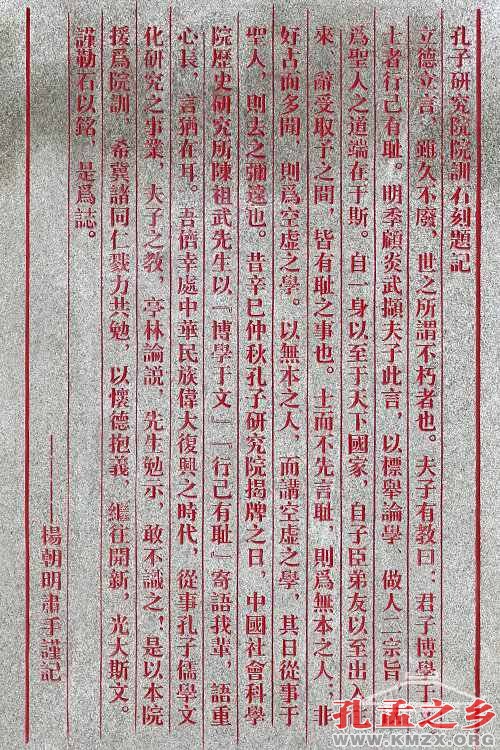 孔子研究院院訓石刻題記
立德立言，雖久不廢，世之所謂不朽者也。夫子有教曰：君子博學于
士者行己有耻。明季顧炎武擷夫子此言，以標舉論學、做人二宗旨
爲聖人之道端在于斯。自一身以至于天下國家，自子臣弟友以至出入
來、辭受取予之間，皆有耻之事也。士而不先言耻，則爲無本之人；非
好古而多聞，則爲空虛之學。以無本之人，而講空虛之學，其日從事于
聖人，則去之彌遠也。昔辛巳仲秋孔子研究院揭牌之日，中國社會科學
院歷史研究所陳祖武先生以『博學于文』『行己有耻』寄語我輩，語重
心長，言猶在耳。吾儕幸處中華民族偉大復興之時代，從事孔子儒學文
化研究之事業，夫子之教，亭林論説，先生勉示，敢不識之！是以本院
援爲院訓，希冀諸同仁戮力共勉，以懷德抱義、繼往開新，光大斯文。
謹勒石以銘，是爲誌。
————楊朝明肅手謹記
孔孟之乡
WWW.KMZX.ORG